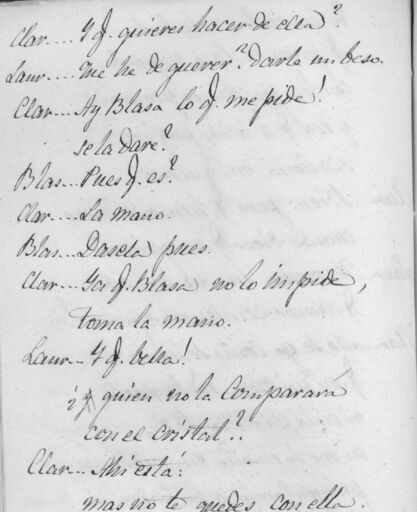 Clar.... Y q. quieres hacer de ella?
Laur.... Que he de querer? darle un beso.
Clar.... Ay Blasa lo q. me pide!
se la dare?
Blas... Pues q. es?
Clar.... La mano.
Blas... Dasela pues.
Clar... Ya q. Blasa no lo impide,
toma la mano.
Laur... Y q. bella!
¡y quien no la comparará
con el cristal?
Clar... Ahi está:
mas no te quedes con ella.